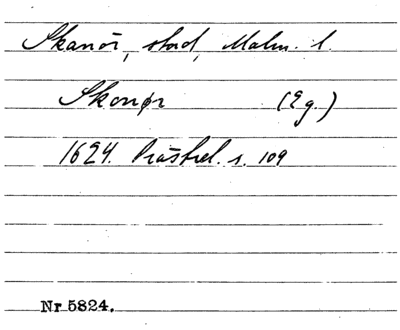 Skanör, stad, Malm. l.
Skonør (Eg.)
1624. Prästrel. s. 109
Nr 5824.